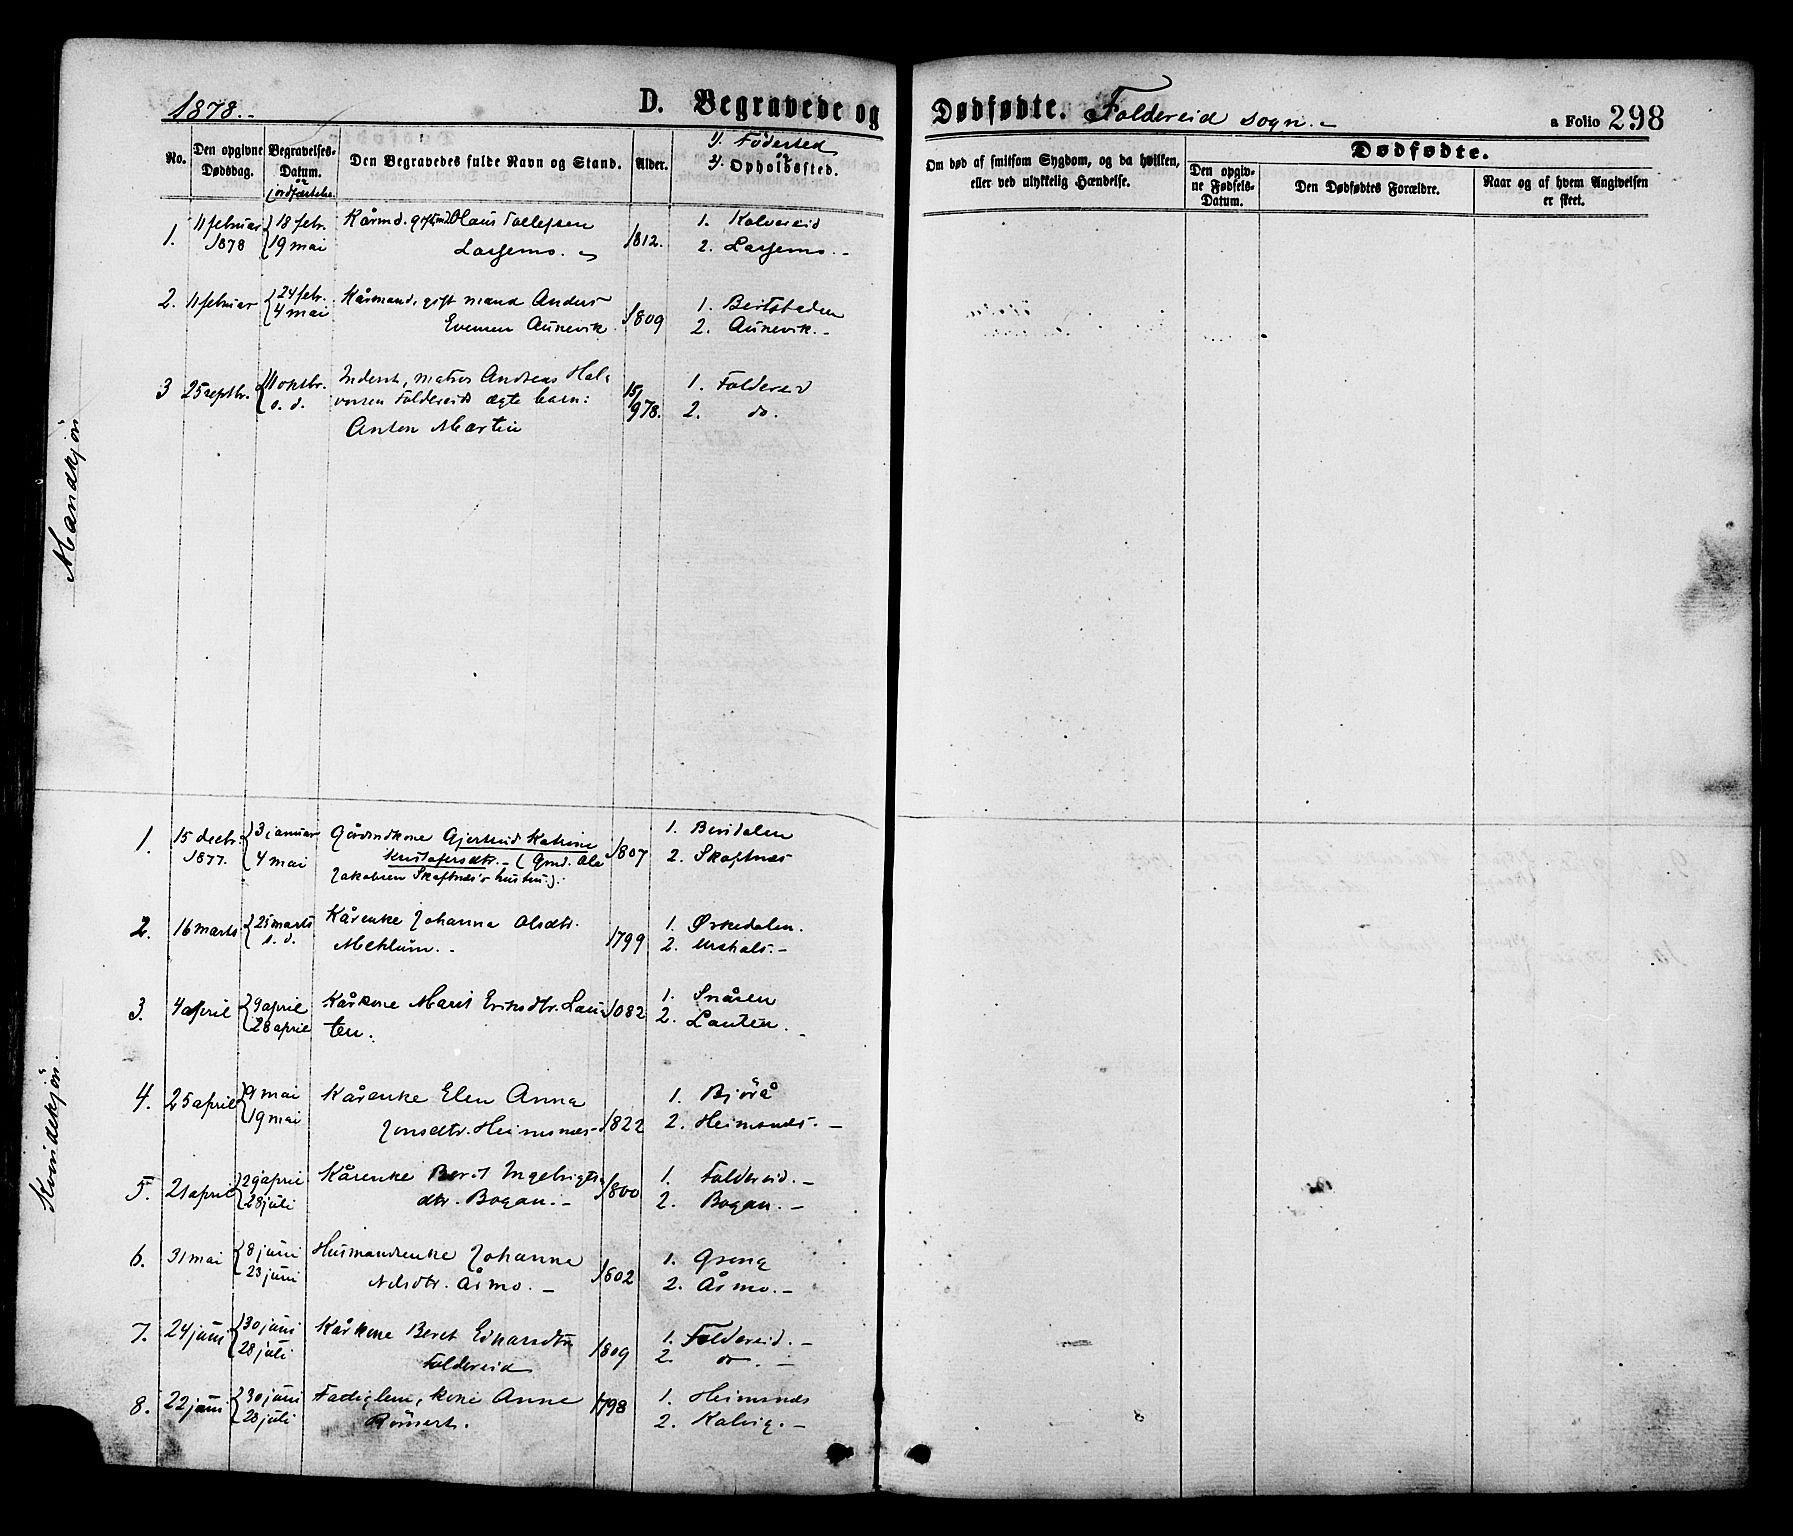 1878.-
D. Begravede og
Dødfødte. Foldereid sogn.-
a Folio 298
No.
Den opgivne Dødsdag.
Begravelses-Datum. & Jordfæstelse
Den Begravedes fulde Navn og Stand.
Alder.
1). Fødested
2). Opholdssted.
Om død af smitsom Sygdom, og da hvilken,
eller ved ulykkelig Hændelse.
Dødfødte.
Den opgiv-
ne Fødsels-
Datum.
Den Dødfødtes Forældre.
Naar og af hvem Angivelsen
er skeet.
Mandkjön
1. 11 februar 1878 { 18 febr. 19 mai
Kårmd. gift md Hans Tollefsen
Lassemo.
1812.
1. Kolvereid
2. Lassemo.-
2. 11 februar { 24 febr. 4 mai
Kårmand, gift mand Anders
Evensen Aunevik.
1809
1.
2. Aunevik.-
3 25 septbr. { 11 oktbr. s. d.
Inderst, matros Andreas Hal-
vorsen Foldereids ægte barn:
Anton Martin
15/978.
1. Foldereid
2. do.
Kvindekjön.
1. 15 decbr. 1877. { 3 januar 4 mai
Gårdmdkone Gjertrud Katrine
Kristofersdtr.- (Gmd. Ole
Jakobsen Skaftnæs's hustru).
1807
1.
2. Skaftnæs
2. 16 marts { 25 marts s. d.
Kårenke Johanna Olsdtr.
Meklum.-
1799
1. Ørkedalen.
2.
3. 4 april { 9 april 28 april
Kårkone Marit Eriksdtr. Lau-
ten.
1. Snåsen
2. Lauten.-
4. 25 april { 9 mai 19 mai
Kårenke Elen Anna
Jonsdtr. Heimsnæs-
1822
1. Bjørå
2. Heimsnæs.-
5. 21 april { 29 april 28 juli
Kårenke Berit Ingebrigts-
dtr. Bogan.-
1800
1. Foldereid.-
2. Bogan.-
6. 31 mai { 8 juni 23 juni
Husmandsenke Johanna
Nilsdtr. Åsmo.-
1802
1. Grong
2. Åsmo.-
7. 24 juni { 30 juni 28 juli
Kårkone Beret
Foldereid
1809
1. Foldereid.-
2. do.-
8. 22 juni { 30 juni 28 juli
Fattiglem, kone Anne
1798
1. Heimsnæs
2. Kalvig.-